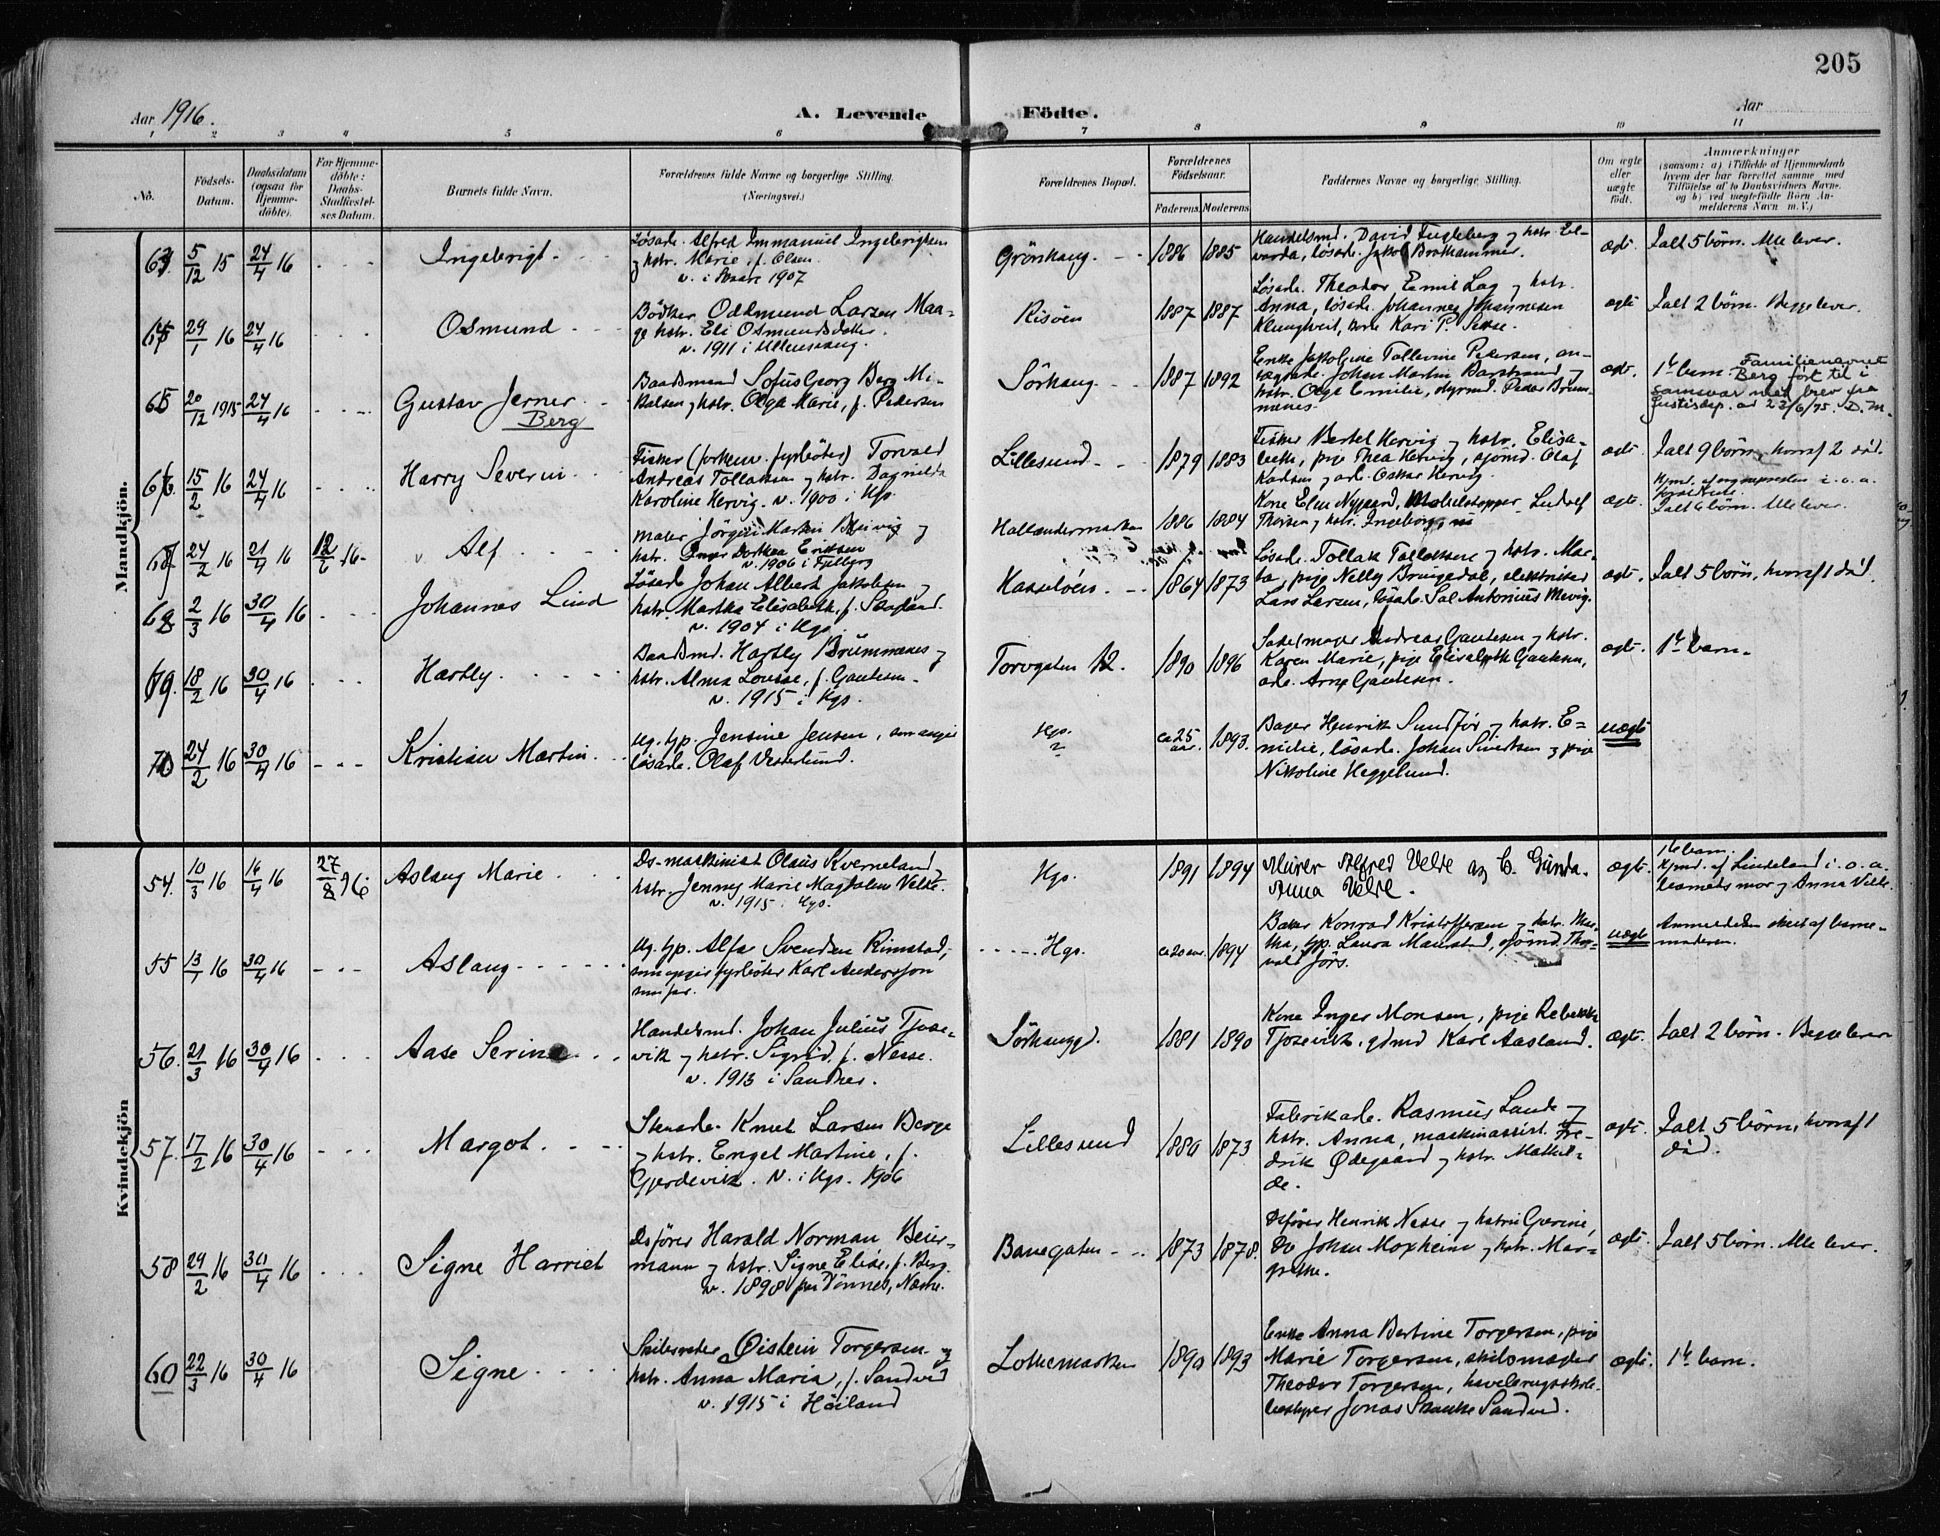 205
Aar 1916.
A. Levende
Födte.
Aar
1 2 3 4 5 6 7 8 9 10 11
No.
Födsels-
Datum.
Daabsdatum
(ogsaa for
Hjemme-
döbte).
For Hjemme-
döbte:
Daabs-
Stadfæstel-
ses Datum.
Barnets fulde Navn.
Forældrenes fulde Navne og borgerlige Stilling.
(Næringsvei.)
Forældrenes Bopæl.
Forældrenes
Födselsaar.
Faderens Moderens
Faddernes Navne og borgerlige Stilling.
Om ægte
eller
uægte
födt.
Anmærkninger
(saasom: a) i Tilfælde af Hjemmedaab
hvem der har forrettet samme, med
Tilföielse af to Daabsvidners Navne.
og b) ved uægtefödte Börn An-
melderens Navn m. V.)
Mandkjön.
5/12 15 24/4 16
Ingebrigt
Løsarb. Alfred Immanuel Ingebrigtsen
og hstr. Marie, f. Olsen
v. i Skaare 1907
Grönhaug
1886 1885
Handelsmd. David Fugleberg og hstr.
løsarb. Jakob
ægt.
Ialt 5 børn. Alle lever.
29/1 16 24/4 16
Osmund
Bödker Oddmund Larsen
hstr. Eli Osmundsdatter
v. 1911 i Ullensvang.
Risöen
1887 1887
Løsarb. Theodor Emil Lag og hstr.
Anna, løsarb. Johannes Johannesen
Kari P.
ægt.
Ialt 2 børn. Begge lever.
65 20/12 1915 24/4 16
Gustav Jerner
Berg
Baadsmand Sofus Georg Berg Mi-
kalsen og hstr. Olga Marie, f. Pedersen
Sörhaug
1887 1892
Enke Jakobine Tallevine Pedersen,
Johan Martin
hstr. Olga Emilie, styrmd. Peder
ægt.
1ste barn.
Familienavnet
Berg ført til i
samsvar med brev fra
Justisdep. av 23/6/75. D.M.
66. 15/2 16 24/4 16
Harry Severin
Fisker (forhenv. fyrbøter) Torvald
Andreas Tollaksen og hstr. Dagnilde
Karoline Hervig. v. 1900 i Hgs.
Lillesund
1879 1883
Fisker Bertel Hervig og hstr. Elisa-
beth, pige Thea Hervig, sjømd. Olaf
og arb. Oskar Hervig.
ægt.
Ialt 9 børn, hvoraf 2 død.
24/2 16 21/4 16 12/6 16
Alf
Maler Jörgen Martin
hstr. Inger Dorthea Eriksen
v. 1906 i
Hollendermarken
1886 1884
Kone Elen Nygaard, Ludvig
Thorsen og hstr. Ingeborg
ægt.
Hjmd. af sognepresten i. o. a.
Ialt 6 børn. Alle lever.
68 2/3 16 30/4 16
Johannes Lind
Løsarb. Johan Albert Jakobsen og
hstr. Martha Elisabeth, f. Skogland.
v. 1904 i Hgs.
Hasseløen
1864 1873
Løsarb. Tollak Tollaksen og hstr. Mar-
ta, pige Nelly Bringedal, elektriker
Lars Larsen, løsarb. Sal. Antonius Mevig.
ægt.
Ialt 5 børn, hvoraf 1 død.
69. 18/2 16 30/4 16
Hartly
Baadsmd. Hartly Brummenes og
hstr. Alma Lovise, f. Gautesen
v. 1915 i Hgs.
Torvgaten 12.
1890 1896
Sadelmager Andreas Gautesen og hstr.
Karen Marie, pige Elisabeth Gautesen,
arb. Arne Gautesen.
ægt.
1ste barn.
70 24/2 16 30/4 16
Kristian Martin
Ug. tjp. Jensine Jensen, som angir
løsarb. Olaf Vesterlund.
Hgs.
ca 25 aar. 1893.
Bager Henrik Sundför og hstr. E-
milie, løsarb. Johan Sivertsen og pige
Nikoline Heggelund.
uægt
Kvindekjön
54. 10/3 16 16/4 16 27/8 16
Aslaug Marie
Ds-maskinist Olaus Kverneland
hstr. Jenny Marie Magdalene Velde.
v. 1915 Hgs.
Hgs.
1891 1894
Murer Alfred Velde og C. Gunda.
Anna Velde.
ægt.
1ste barn.
Hjmd. af Lindeland i. o. a.
barnets mor og Anna Velde.
55 13/1 16 30/4 16
Aslaug
Ug. tjp. Alfa Svendsen Rimstad,
som opgir fyrbøter Karl Andersson
som far.
Hgs.
ca 20 aar. 1894
Baker Konrad Kristoffersen og hstr. Mar-
tha, tjp. Laura sjømd. Thor-
vald Jörs.
uægt
Anmeldelsen skeet af barne-
moderen.
56. 21/3 16 30/4 16
Aase Serine
Handelsmd. Johan Julius Tjose-
vik og hstr. Sigrid f. Nesse.
v. 1913 i Sandnes.
Sörhauggd.
1881 1890
Kone Inger Monsen, pige Rebekka
Tjosevik, gdmd Karl Aasland.
ægt.
Ialt 2 børn. Begge lever
57. 17/2 16 30/4 16
Margot
Stenarb. Knut Larsen Berge
og hstr. Engel Martine, f.
Gjerdevik. v. i Hgs. 1906
Lillesund
1880 1873
Fabrikarb. Rasmus Lande og
hstr. Anna, maskinassist. Fre-
drik Ødegaard og hstr. Mathil-
de.
ægt.
Ialt 5 børn, hvoraf 1
död.
58 29/2 16 30/4 16
Signe Harriet
Dsfører Harald Norman Beier-
mann og hstr. Signe Elise, f. Berg.
v. 1898 paa Dönnes, Nesne.
Banegaten
1873 1878.
Dsfører Henrik Nesse og hstru Gurine,
Do Johan Moxheim og hstr. Mar-
grethe.
ægt.
Ialt 5 børn. Alle lever.
60 22/3 16 30/4 16
Signe
Skibsreder Øistein Torgersen og
hstr. Anna Maria, f. Sandved
v. 1915 i Höiland
Lothemarken
1890 1893
Enke Anna Bertine Torgersen, pige
Marie Torgersen, skibsmægler
Theodor Torgersen, havebrugsskole-
bestyrer Jonas Skanke Sandved.
ægt.
1ste barn.